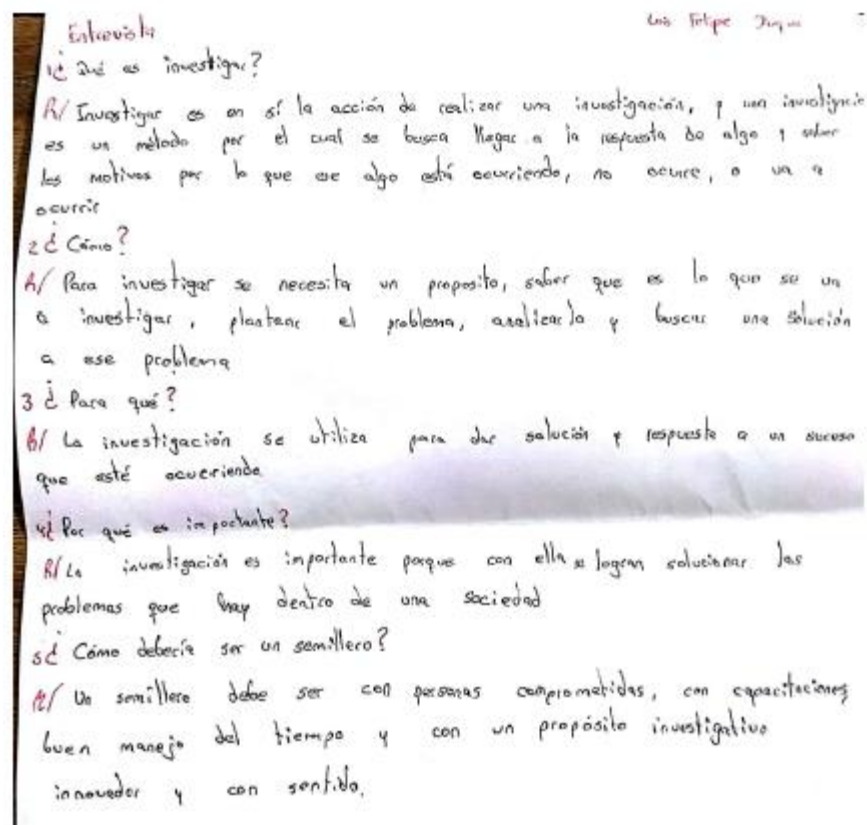 Entrevista Luis Felipe Duque
1¿ Qué es investigar?
R/ Investigar es en sí la acción de realizar una investigación, y una investigació
es un método por el cual se busca llegar a la respuesta de algo y saber
los motivos por lo que ese algo está ocurriendo, no ocurre, o va a
ocurrir
2¿ Cómo?
R/ Para investigar se necesita un proposito, saber que es lo que se va
a investigar, plantear el problema, analizarlo y buscar una solución
a ese problema
3 ¿ Para qué?
R/ La investigación se utiliza para dar solución y respuesta a un suceso
que esté ocurriendo
4¿ Por qué es importante?
R/ La investigación es importante porque con ella se logran solucionar los
problemas que hay dentro de una sociedad
5¿ Cómo debería ser un semillero?
R/ Un semillero debe ser con personas comprometidas, con capacitaciones
buen manejo del tiempo y con un propósito investigativo
innovador y con sentido.